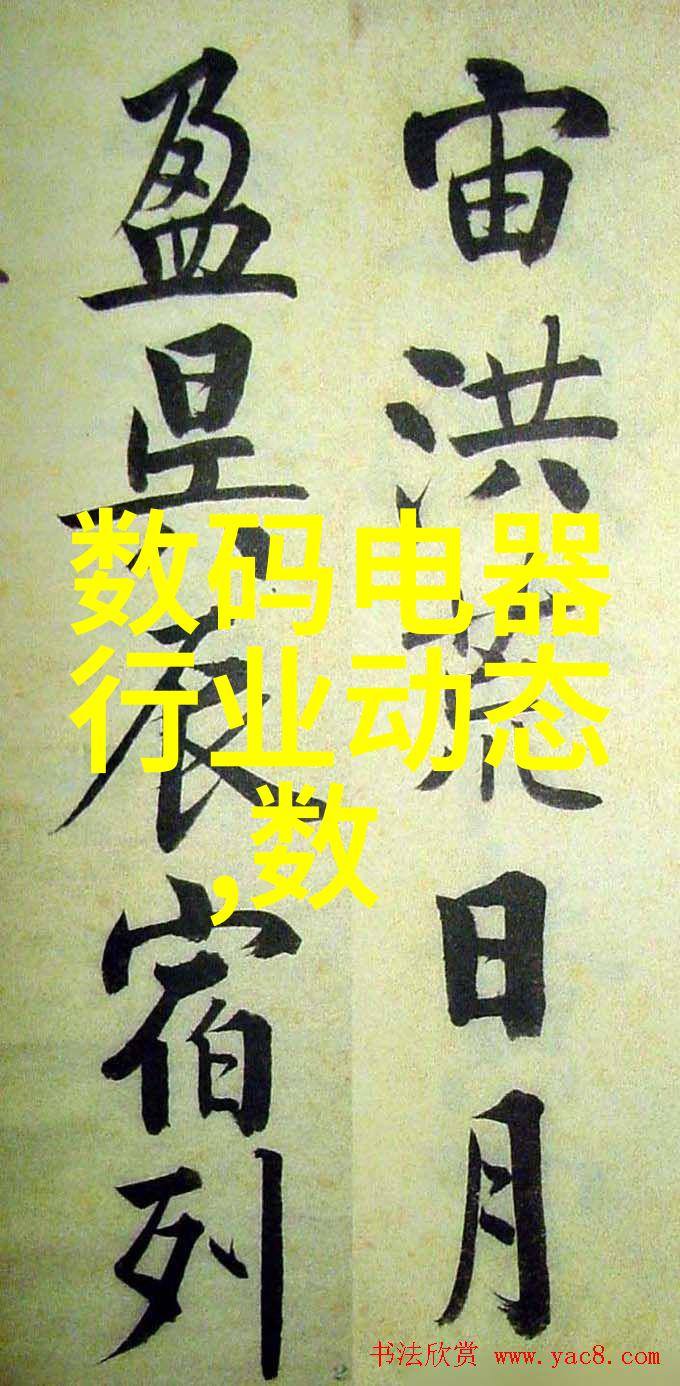 宙洪荒日月
盈昃辰宿列
数码电器
行业动态
,数
书法欣赏 www.yac8.com